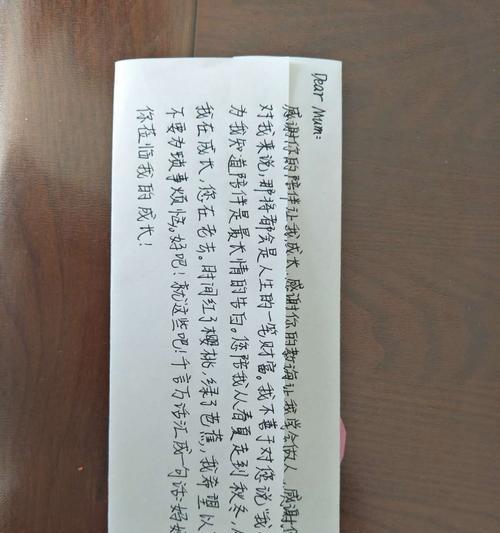 Dear Mum:
感谢你的陪伴让我成长,感谢你的教诲让我学会做人,感谢你
对我来说,那将都会是人生的一笔财富。我不善于对您说"我
为我知道陪伴是最长情的告白。您陪我从春夏走到秋冬,
我在成长,您在老去。时间红了樱桃,绿了芭蕉,我希望以
不要为琐事烦恼。好吧!就这些吧!千言万语汇成一句话:妈妈
你莅临我的成长!